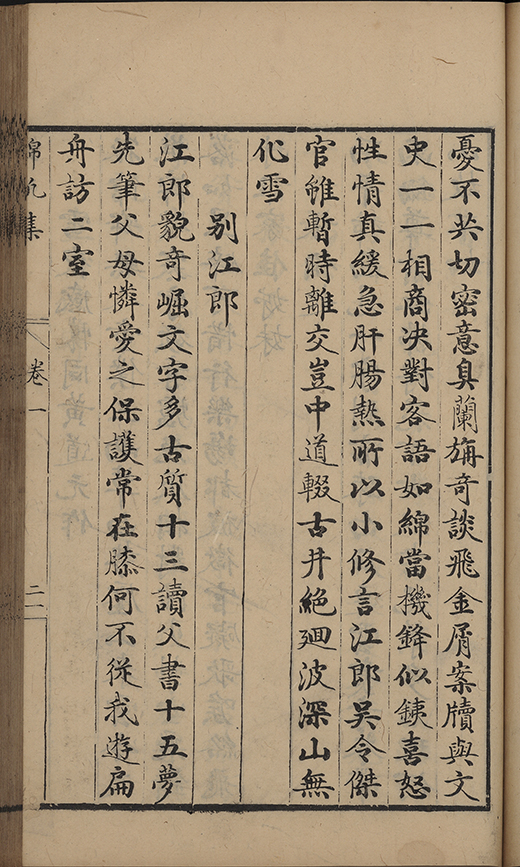 憂不共切密意臭蘭旃奇談飛金屑案牘與文
史一一相商决對客語如綿當機鋒似銕喜怒
性情真緩急肝腸熱所以小修言江郎吳令傑
官雖暫時離交豈中道輟古井絕廻波深山無
化雪
别江郎
江郎貌奇崛文字多古質十三讀父書十五夢
先筆父母憐愛之保護常在膝何不從我遊扁
舟訪二室
錦帆集
卷一
二二